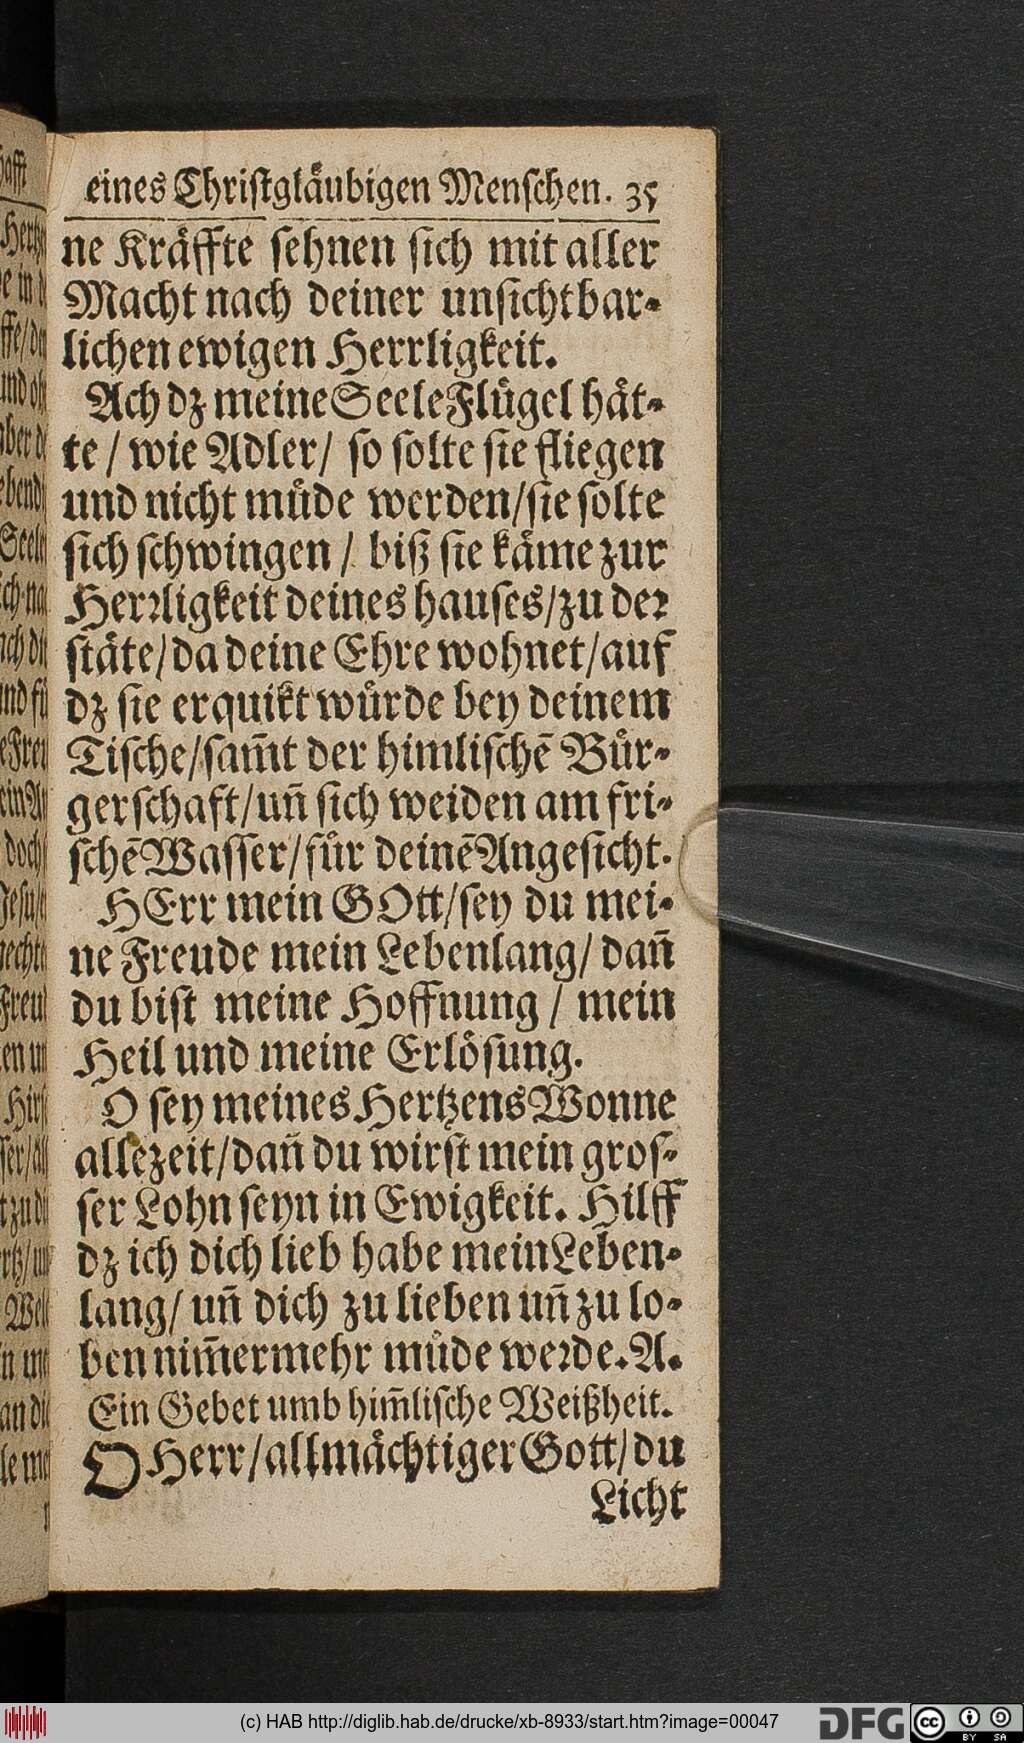 eines Christgläubigen Menschen. 35
ne Kräffte sehnen sich mit aller
Macht nach deiner unsichtbar-
lichen ewigen Herrligkeit.
Ach dz meine Seele Flügel hät-
te / wie Adler / so solte sie fliegen
und nicht müde werden / sie solte
sich schwingen / biß sie käme zur
Herrligkeit deines hauses / zu der
stäte / da deine Ehre wohnet / auf
dz sie erquikt würde bey deinem
Tische / sam̃t der himlischẽ Bür-
gerschaft / uñ sich weiden am fri-
schẽ Wasser / für deinẽ Angesicht.
HErr mein GOtt / sey du mei-
ne Freude mein Lebenlang / dañ
du bist meine Hoffnung / mein
Heil und meine Erlösung.
O sey meines Hertzens Wonne
allezeit / dañ du wirst mein gros-
ser Lohn seyn in Ewigkeit. Hilff
dz ich dich lieb habe mein Leben-
lang / uñ dich zu lieben uñ zu lo-
ben nim̃ermehr müde werde. A.
Ein Gebet umb him̃lische Weißheit.
O Herr / allmächtiger Gott / du
Licht
(c) HAB http://diglib.hab.de/drucke/xb-8933/start.htm?image=00047
DFG
cc
BY SA